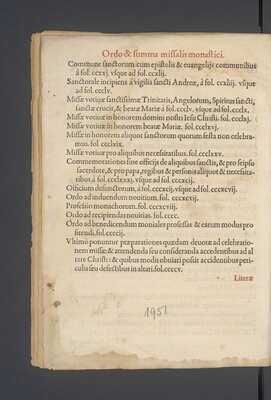 Ordo & summa missalis monastici.
Commune sanctorum cum epistolis & euangelijs communibus
á fol. ccxxj. vsque ad fol. ccxlij.
Sanctorale incipiens á vigilia sancti Andreæ, á fol. ccxliij. vsque
ad fol. cccclv.
Missæ votiuæ sanctissimæ Trinitatis, Angelorum, Spiritus sancti,
sanctæ crucis, & beatæ Mariæ á fol.
Missæ votiuæ in honorem domini nostri Iesu Christi. fol.
Missæ votiuæ in honorem beatæ Mariæ. fol.
Missæ in honorem aliquorum sanctorum quorum festa non celebra-
mus. fol.
Missæ votiuæ pro aliquibus necessitatibus. fol.
Commemorationes siue officia de aliquibus sanctis, & pro seipso
sacerdote, & pro papa, regibus & personis aliquot & necessita-
tibus. á fol. vsque ad fol.
Officium defunctorum, á fol. vsque ad fol.
Ordo ad induendum nouitium. fol.
Professio monachorum. fol.
Ordo ad recipiendas nouitias. fol. cccc.
Ordo ad benedicendum moniales professas & earum modus pro
fitendi. fol. ccccij.
Vltimo ponuntur præparationes quædam deuotæ ad celebratio-
nem missæ & attendenda seu consideranda accedentibus ad al
tare Christi: & quibus modis obuiari possit accidentibus peri-
culis seu defectibus in altari. fol. ccccv.
Literæ
1951